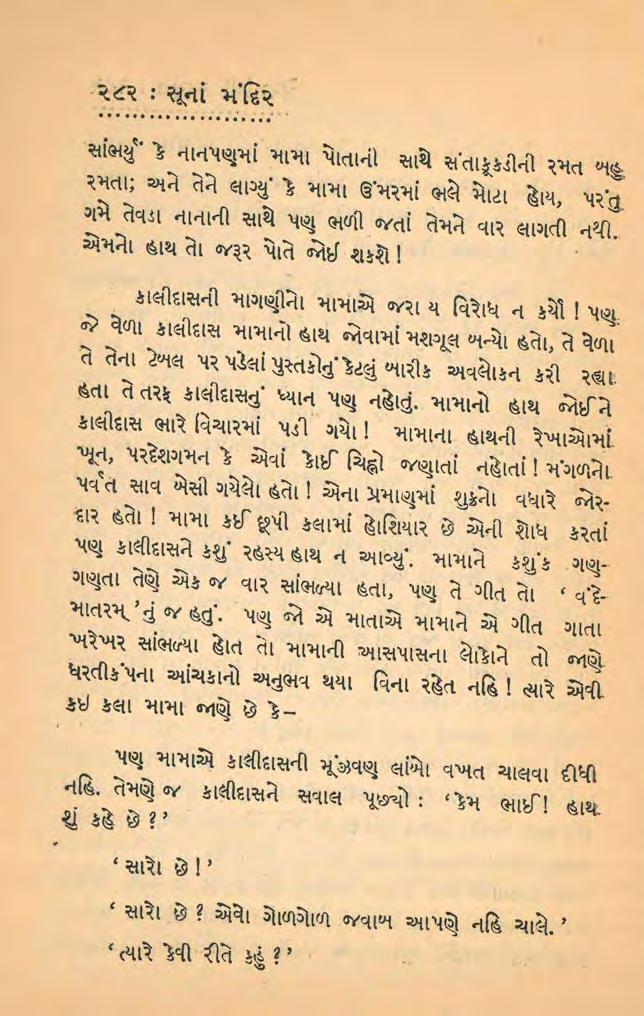 ૨૮૨ : સૂનાં મંદિર
સાંભર્યું કે નાનપણમાં મામા પોતાની સાથે સંતાકૂકડીની રમત બહુ
રમતા; અને તેને લાગ્યું કે મામા ઉંમરમાં ભલે મોટા હોય, પરંતુ
ગમે તેવડા નાનાની સાથે પણ ભળી જતાં તેમને વાર લાગતી નથી.
એમનો હાથ તો જરૂર પોતે જોઈ શકશે!
કાલીદાસની માગણીનો મામાએ જરા ય વિરોધ ન કર્યો! પણ
જે વેળા કાલીદાસ મામાનો હાથ જોવામાં મશગૂલ બન્યો હતો, તે વેળા
તે તેના ટેબલ પર પડેલાં પુસ્તકોનું કેટલું બારીક અવલોકન કરી રહ્યા
હતા તે તરફ કાલીદાસનું ધ્યાન પણ નહોતું. મામાનો હાથ જોઈને
કાલીદાસ ભારે વિચારમાં પડી ગયો! મામાના હાથની રેખાઓમાં
ખૂન, પરદેશગમન કે એવાં કોઈ ચિહ્નો જણાતાં નહોતાં! મંગળનો
પર્વત સાવ બેસી ગયેલો હતો! એના પ્રમાણમાં શુક્રનો વધારે જોર-
દાર હતો! મામા કઈ છૂપી કલામાં હોશિયાર છે એની શોધ કરતાં
પણ કાલીદાસને કશું રહસ્ય હાથ ન આવ્યું. મામાને કશુંક ગણ-
ગણતા તેણે એક જ વાર સાંભળ્યા હતા, પણ તે ગીત તો ‘વંદે-
માતરમ્’નું જ હતું. પણ જો એ માતાએ મામાને એ ગીત ગાતા
ખરેખર સાંભળ્યા હોત તો મામાની આસપાસના લોકોને તો જાણે
ધરતીકંપના આંચકાનો અનુભવ થયા વિના રહેત નહિ! ત્યારે એવી
કઇ કલા મામા જાણે છે કે–
પણ મામાએ કાલીદાસની મૂંઝવણ લાંબો વખત ચાલવા દીધી
નહિ. તેમણે જ કાલીદાસને સવાલ પૂછ્યો : ‘કેમ ભાઈ! હાથ
શું કહે છે?’
‘સારો છે!’
‘સારો છે? એવો ગોળગોળ જવાબ આપણે નહિ ચાલે.’
‘ત્યારે કેવી રીતે કહું?’